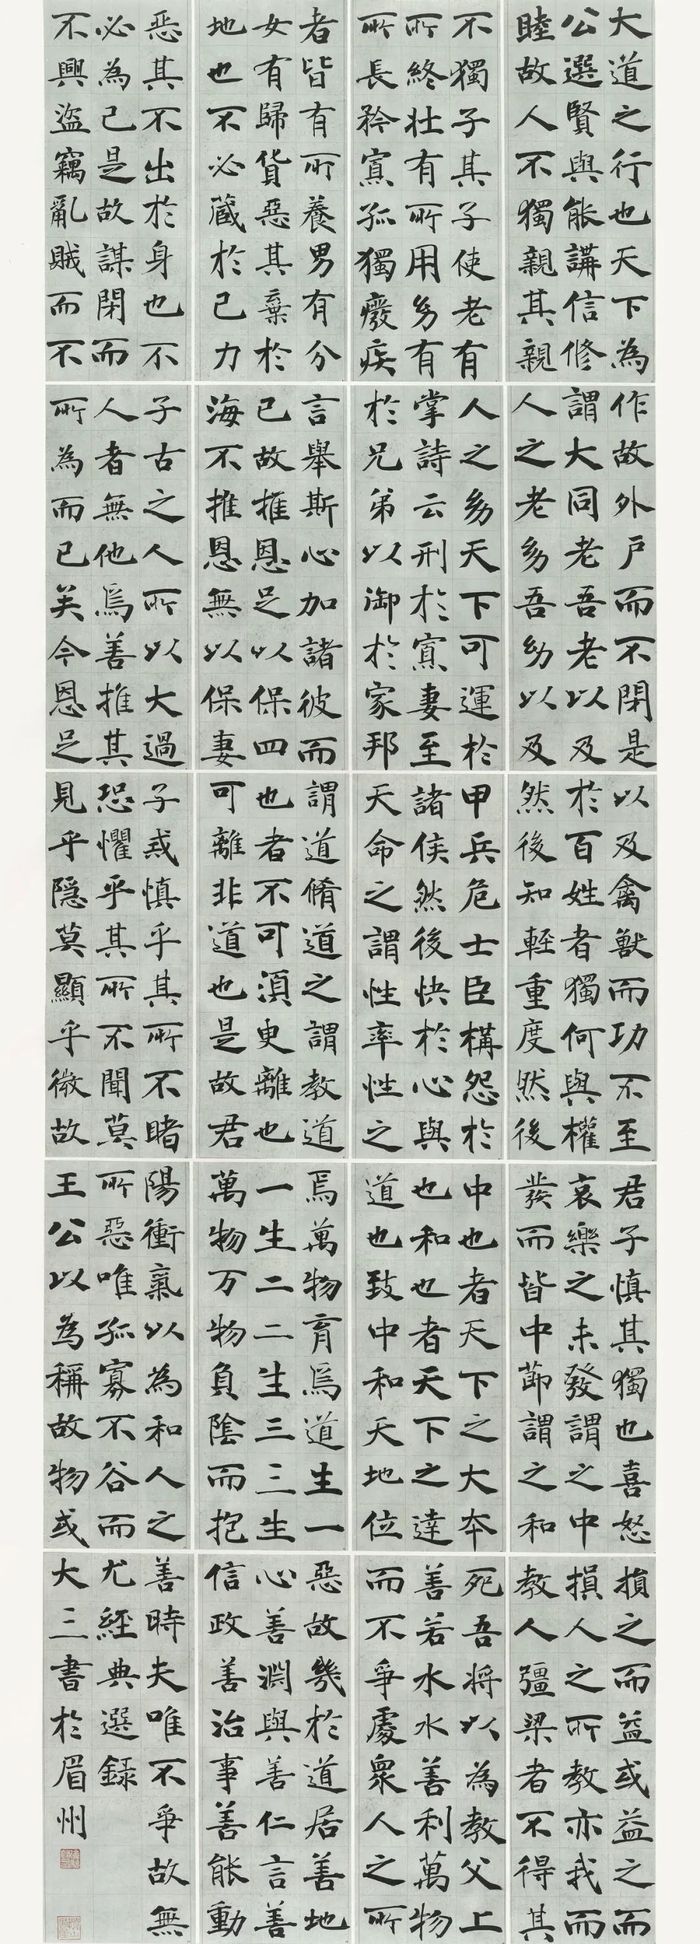 大道之行也天下為
公選賢與能講信修
睦故人不獨親其親
不獨子其子使老有
所終壯有所用幼有
所長矜寡孤獨癈疾
者皆有所養男有分
女有歸貨惡其棄於
地也不必藏於己力
惡其不出於身也不
必為己是故謀閉而
不興盜竊亂賊而不
作故外戶而不閉是
謂大同老吾老以及
人之老幼吾幼以及
人之幼天下可運於
掌詩云刑於寡妻至
於兄弟以御於家邦
言舉斯心加諸彼而
已故推恩足以保四
海不推恩無以保妻
子古之人所以大過
人者無他焉善推其
所為而已矣今恩足
以及禽獸而功不至
於百姓者獨何與權
然後知輕重度然後
甲兵危士臣構怨於
諸侯然後快於心與
天命之謂性率性之
謂道脩道之謂教道
也者不可須臾離也
可離非道也是故君
子戒慎乎其所不睹
恐懼乎其所不聞莫
見乎隱莫顯乎微故
君子慎其獨也喜怒
哀樂之未發謂之中
發而皆中節謂之和
中也者天下之大本
也和也者天下之達
道也致中和天地位
焉萬物育焉道生一
一生二二生三三生
萬物万物負陰而抱
陽衝氣以為和人之
所惡唯孤寡不谷而
王公以為稱故物或
損之而益或益之而
損人之所教亦我而
教人彊梁者不得其
死吾將以為教父上
善若水水善利萬物
而不爭處衆人之所
惡故幾於道居善地
心善淵與善仁言善
信政善治事善能動
善時夫唯不爭故無
尤經典選錄
大三書於眉州